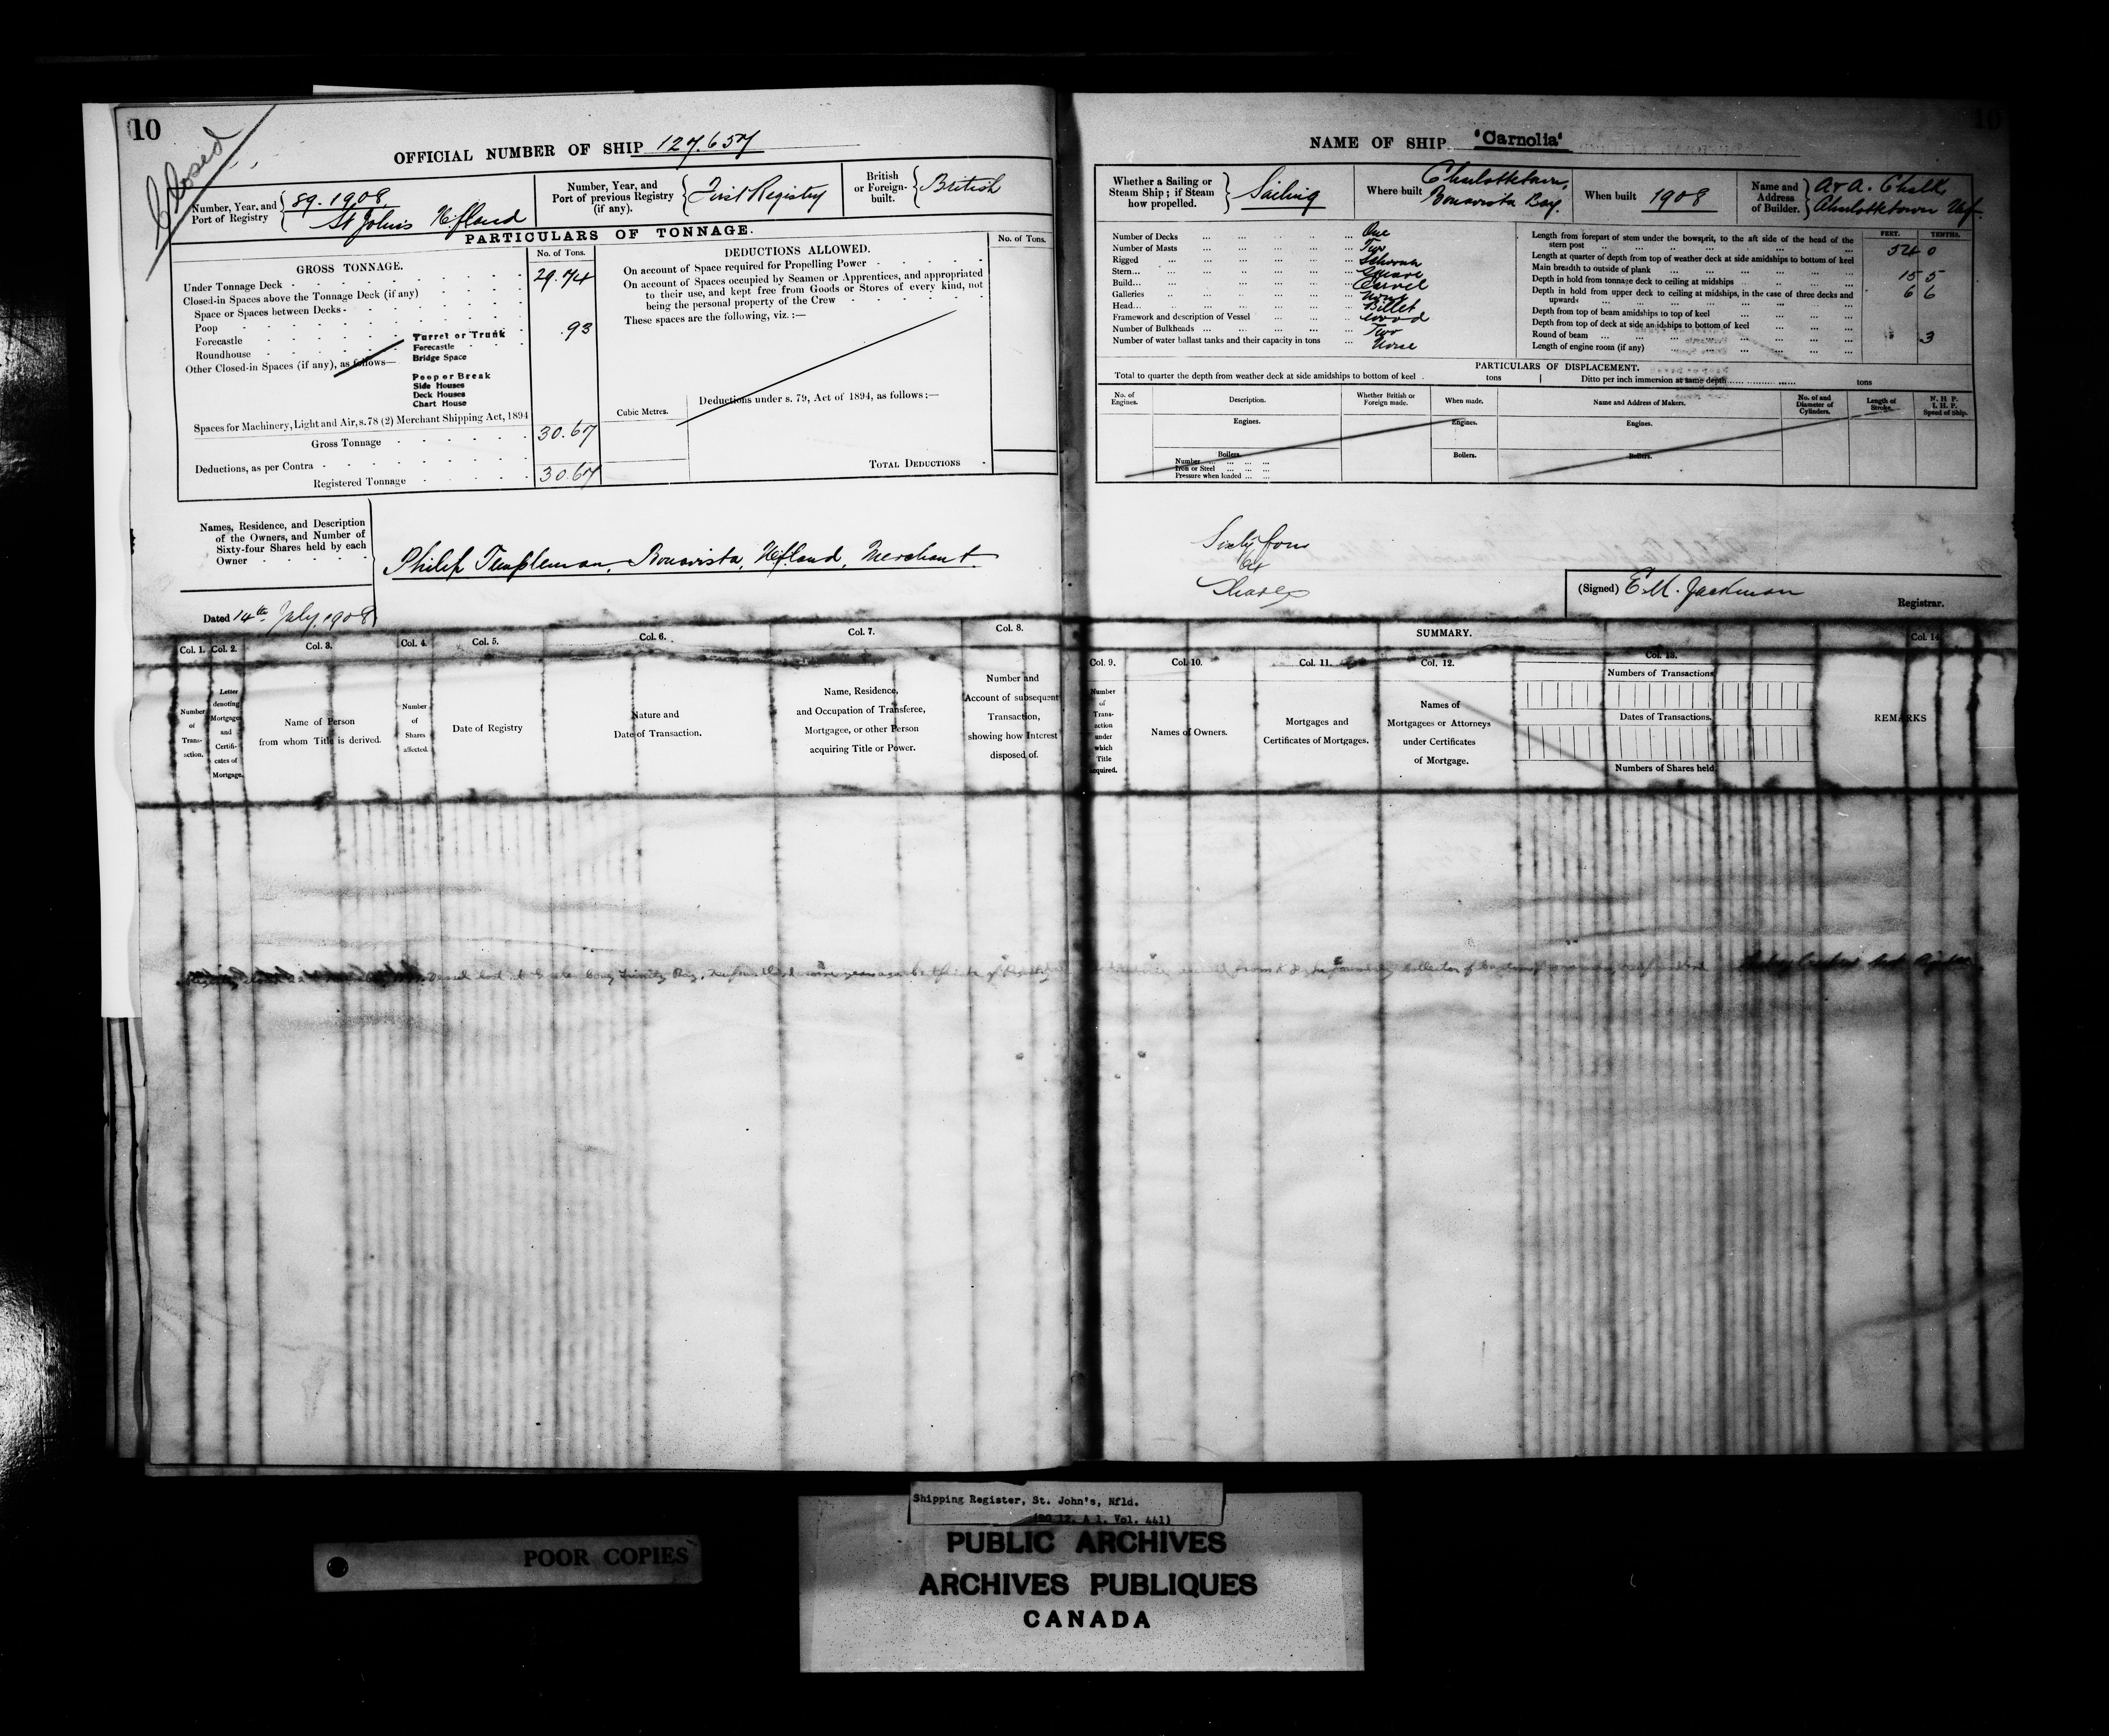 10
Closed
OFFICIAL NUMBER OF SHIP 127.657
Number, Year, and Port of Registry
89. 1908
St John's Nfland
Number, Year, and Port of previous Registry (if any).
First Registry
British or Foreign-built.
British
PARTICULARS OF TONNAGE.
GROSS TONNAGE.
No. of Tons.
Under Tonnage Deck 29.74
Closed-in Spaces above the Tonnage Deck (if any)
Space or Spaces between Decks
Poop
Forecastle
Roundhouse
Other Closed-in Spaces (if any), as follows—
Turret or Trunk
Forecastle
Bridge Space
.93
Poop or Break
Side Houses
Deck Houses
Chart House
Spaces for Machinery, Light and Air, s.78 (2) Merchant Shipping Act, 1894
Gross Tonnage 30.67
Deductions, as per Contra
Registered Tonnage 30.67
DEDUCTIONS ALLOWED.
No. of Tons.
On account of Space required for Propelling Power
On account of Spaces occupied by Seamen or Apprentices, and appropriated
to their use, and kept free from Goods or Stores of every kind, not
being the personal property of the Crew
These spaces are the following, viz. :—
Cubic Metres.
Deductions under s. 79, Act of 1894, as follows :—
TOTAL DEDUCTIONS
Names, Residence, and Description
of the Owners, and Number of
Sixty-four Shares held by each
Owner
Philip Templeman, Bonavista, Nfland, Merchant.
Dated 14th July, 1908
Col. 1. Col. 2. Col. 3. Col. 4. Col. 5. Col. 6. Col. 7. Col. 8.
Number of Transaction.
Letter denoting Mortgages and Certificates of Mortgage.
Name of Person from whom Title is derived.
Number of Shares affected.
Date of Registry
Nature and Date of Transaction.
Name, Residence, and Occupation of Transferee, Mortgagee, or other Person acquiring Title or Power.
Number and Account of subsequent Transaction, showing how Interest disposed of.
10
NAME OF SHIP "Carnolia"
Whether a Sailing or Steam Ship; if Steam how propelled.
Sailing
Where built
Charlottetown, Bonavista Bay.
When built 1908
Name and Address of Builder.
A & A. Chalk, Charlottetown Nf.
Number of Decks One
Number of Masts Two
Rigged Schooner
Stern Square
Build Carvel
Galleries None
Head Billet
Framework and description of Vessel Wood
Number of Bulkheads Two
Number of water ballast tanks and their capacity in tons None
FEET. TENTHS.
Length from forepart of stem under the bowsprit, to the aft side of the head of the stern post 54 0
Length at quarter of depth from top of weather deck at side amidships to bottom of keel
Main breadth to outside of plank 15 5
Depth in hold from tonnage deck to ceiling at midships 6 6
Depth in hold from upper deck to ceiling at midships, in the case of three decks and upwards
Depth from top of beam amidships to top of keel
Depth from top of deck at side amidships to bottom of keel
Round of beam .3
Length of engine room (if any)
PARTICULARS OF DISPLACEMENT.
Total to quarter the depth from weather deck at side amidships to bottom of keel tons
Ditto per inch immersion at same depth tons
No. of Engines.
Description.
Whether British or Foreign made.
When made.
Name and Address of Makers.
No. of and Diameter of Cylinders.
Length of Stroke.
N. H. P. I. H. P. Speed of Ship.
Engines. Engines. Engines.
Boilers. Boilers. Boilers.
Number
Iron or Steel
Pressure when loaded
Sixty four
Shares
(Signed) E.M. Jackman
Registrar.
SUMMARY.
Col. 9. Col. 10. Col. 11. Col. 12. Col. 13. Col. 14
Number of Transaction under which Title acquired.
Names of Owners.
Mortgages and Certificates of Mortgages.
Names of Mortgagees or Attorneys under Certificates of Mortgage.
Numbers of Transactions
Dates of Transactions.
Numbers of Shares held
REMARKS
Vessel lost at Trinity Bay,
Shipping Register, St. John's, Nfld.
(RG 12, A 1, Vol. 441)
POOR COPIES
PUBLIC ARCHIVES
ARCHIVES PUBLIQUES
CANADA